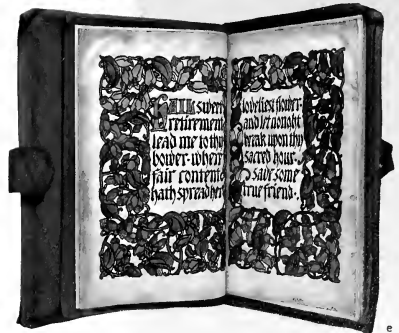 HAIL sweet
retirement
lead me to thy
bower · where
fair content
hath spread her
loveliest flower ·
and let nought
break upon thy
sacred hour ·
save some
true friend ·
e